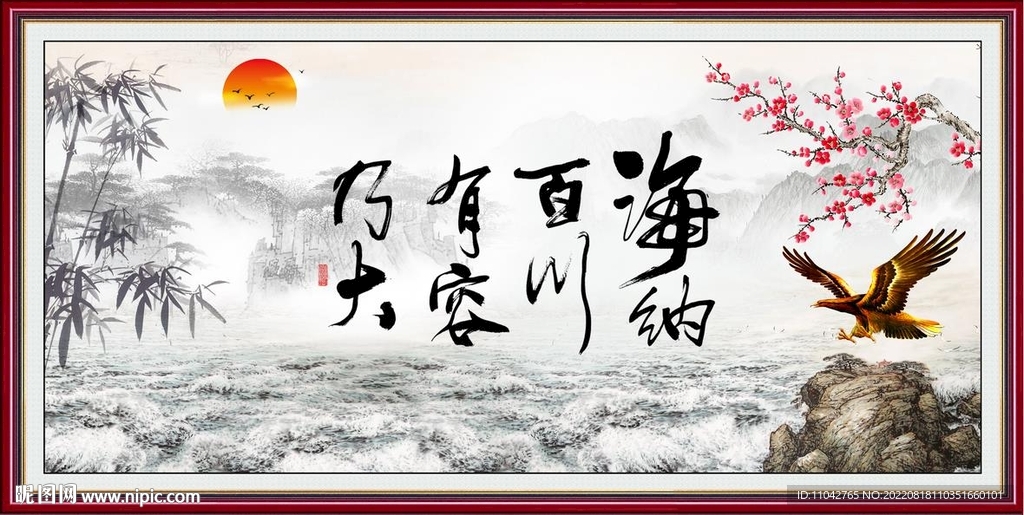 海纳
百川
有容
乃大
昵图网 www.nipic.com
ID:11042765 NO:20220818110351660101